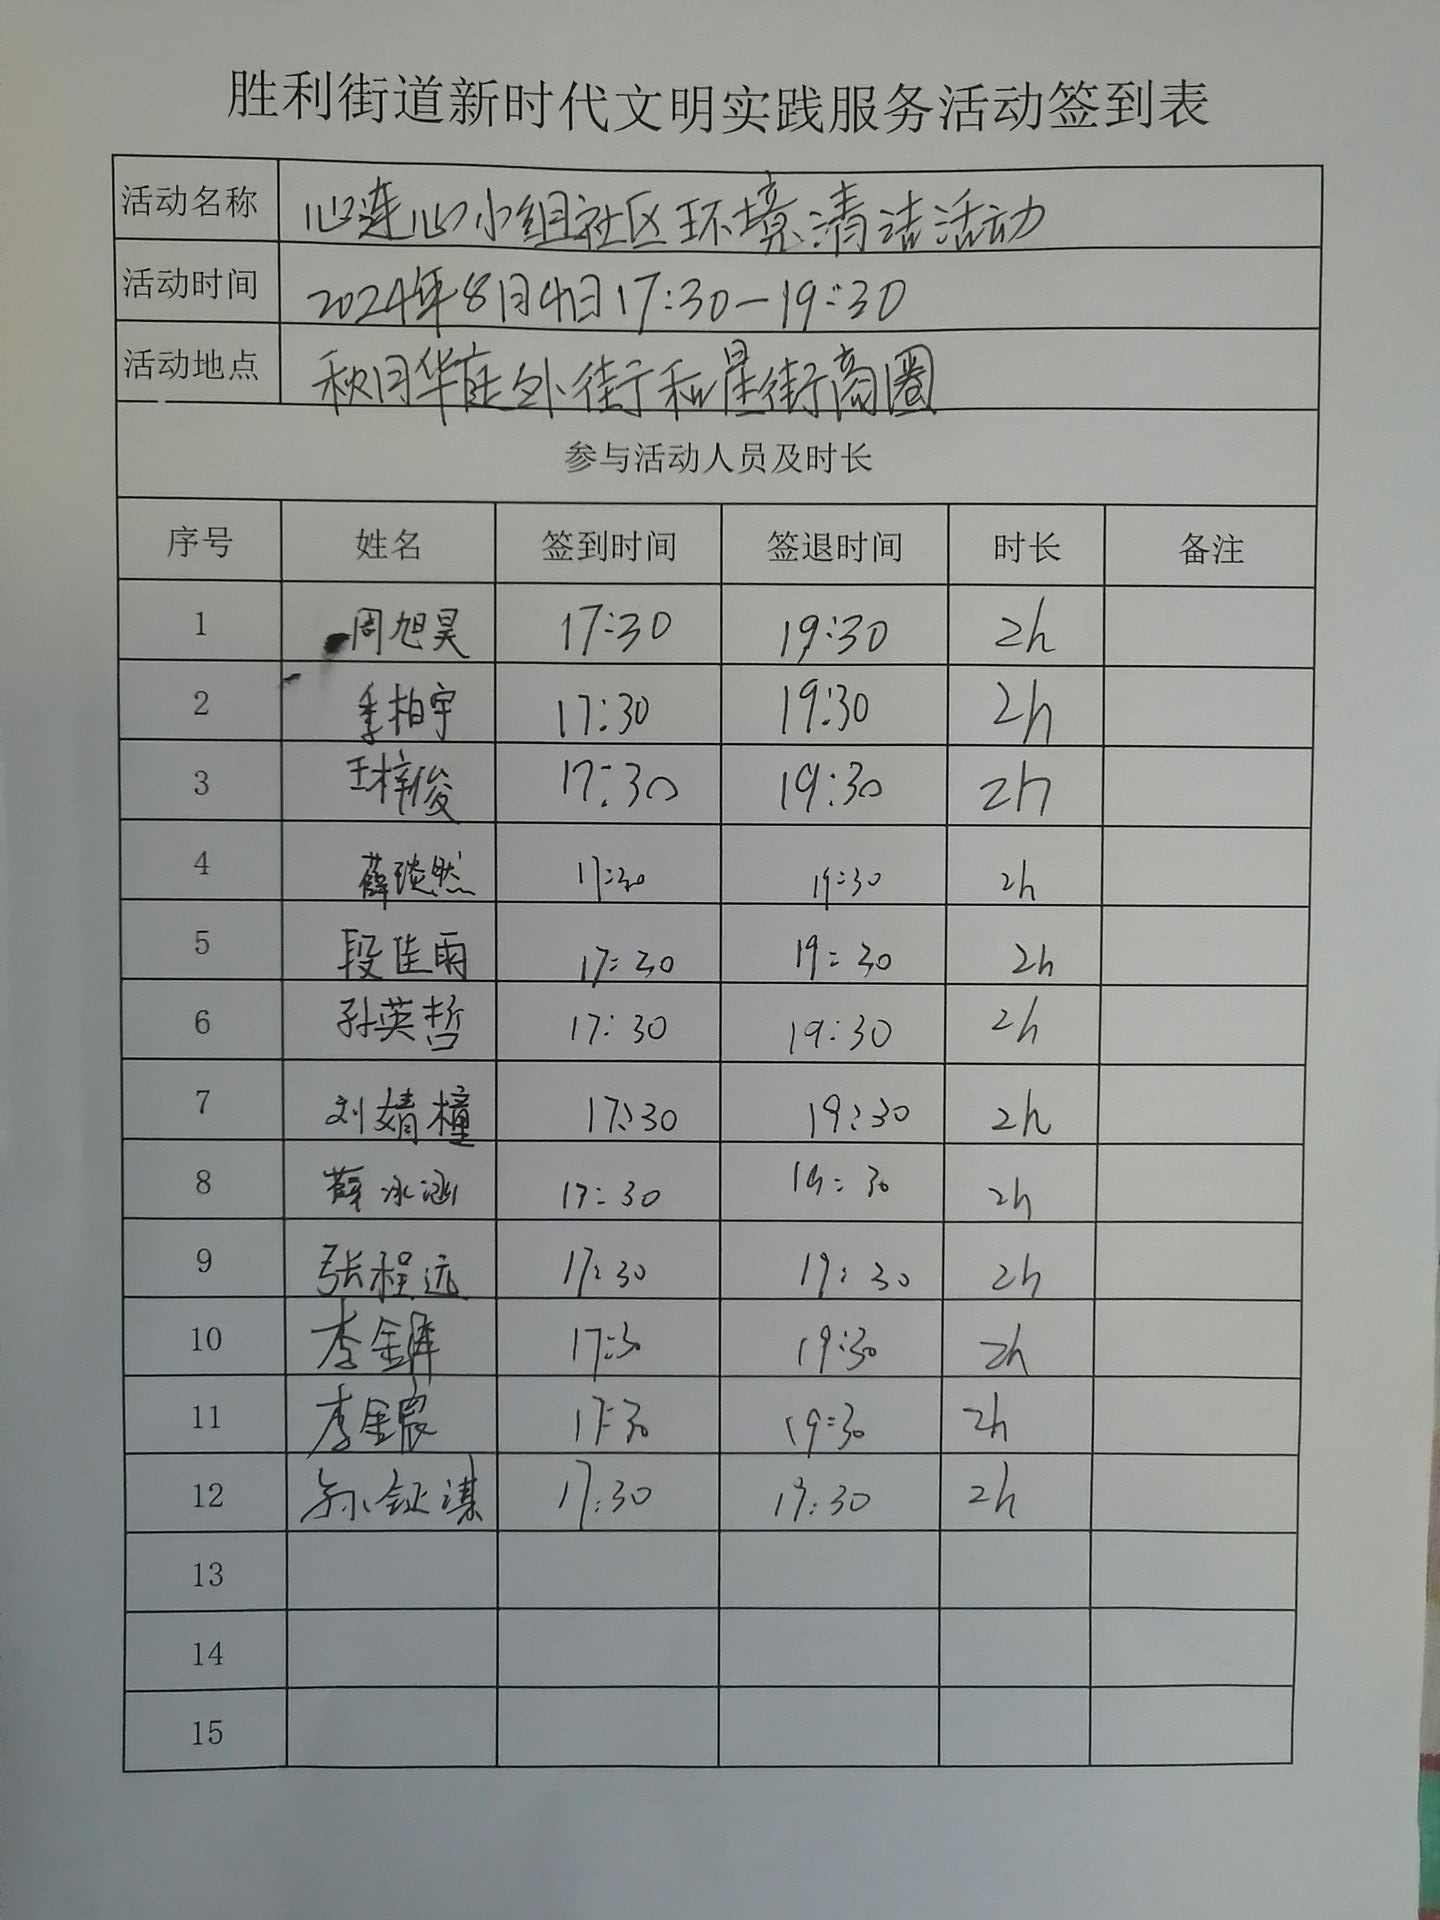 胜利街道新时代文明实践服务活动签到表
活动名称 心连心小组社区环境清洁活动
活动时间 2024年8月4日17:30—19:30
活动地点 秋月华庭外街和星街商圈
参与活动人员及时长
序号 姓名 签到时间 签退时间 时长 备注
1 周旭昊 17:30 19:30 2h
2 季柏宇 17:30 19:30 2h
3 王梓俊 17:30 19:30 2h
4 薛琰然 17:30 19:30 2h
5 段佳雨 17:30 19:30 2h
6 孙英哲 17:30 19:30 2h
7 刘婧橦 17:30 19:30 2h
8 薛冰涵 17:30 19:30 2h
9 张程远 17:30 19:30 2h
10 李金 17:30 19:30 2h
11 李金宸 17:30 19:30 2h
12 孙钲淇 17:30 19:30 2h
13
14
15